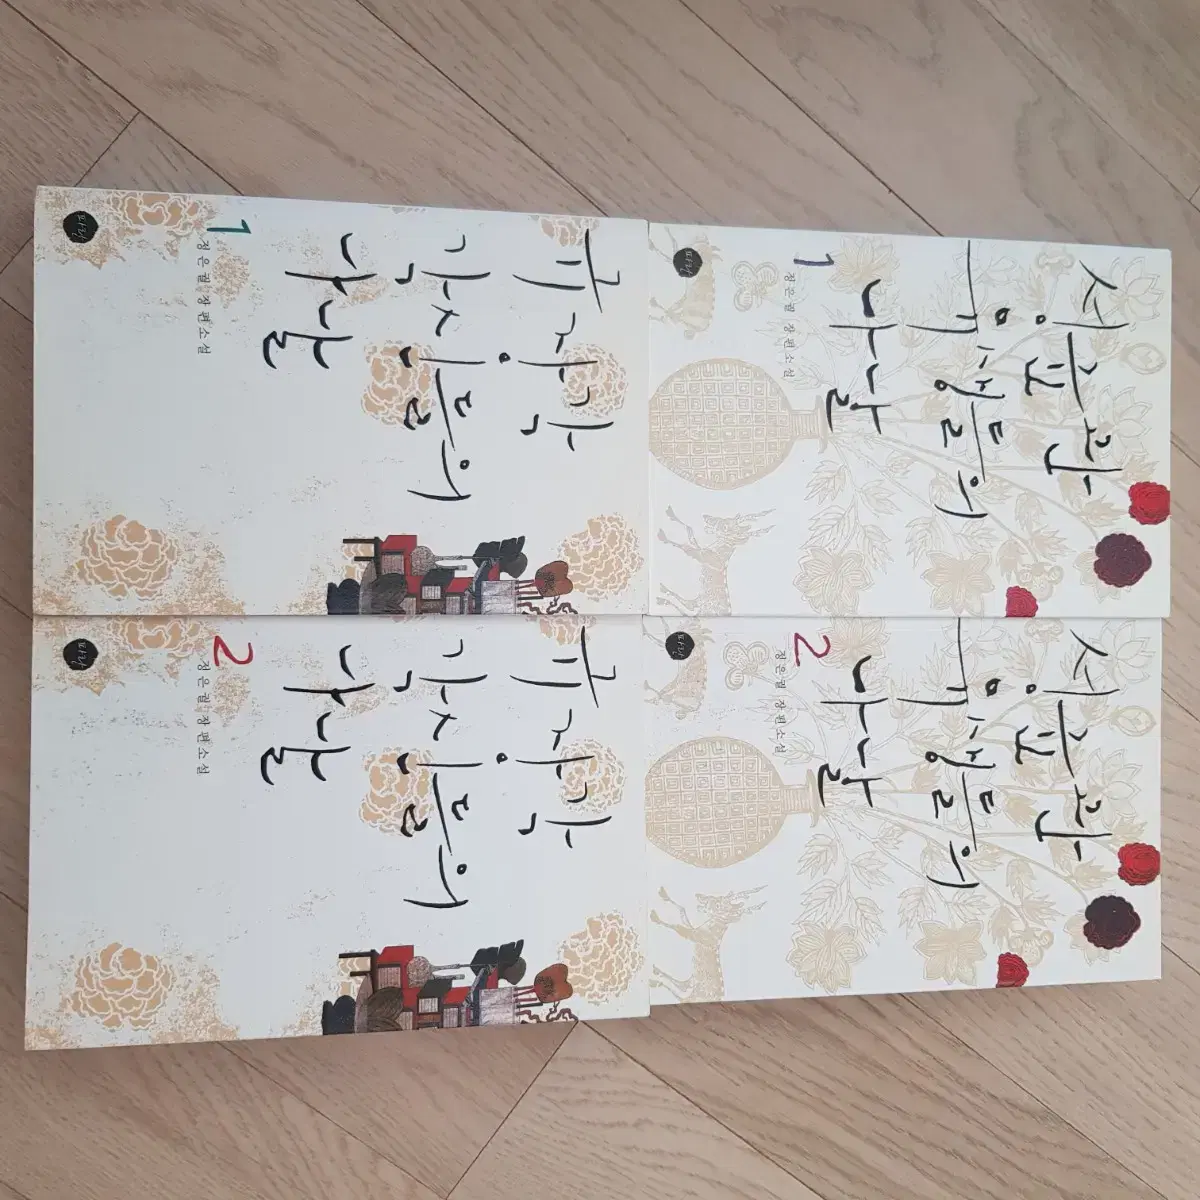 성균관
유생들의
나날
1
정은궐 장편소설
파란
성균관
유생들의
나날
2
정은궐 장편소설
파란
규장각
각신들의
나날
1
정은궐 장편소설
파란
규장각
각신들의
나날
2
정은궐 장편소설
파란